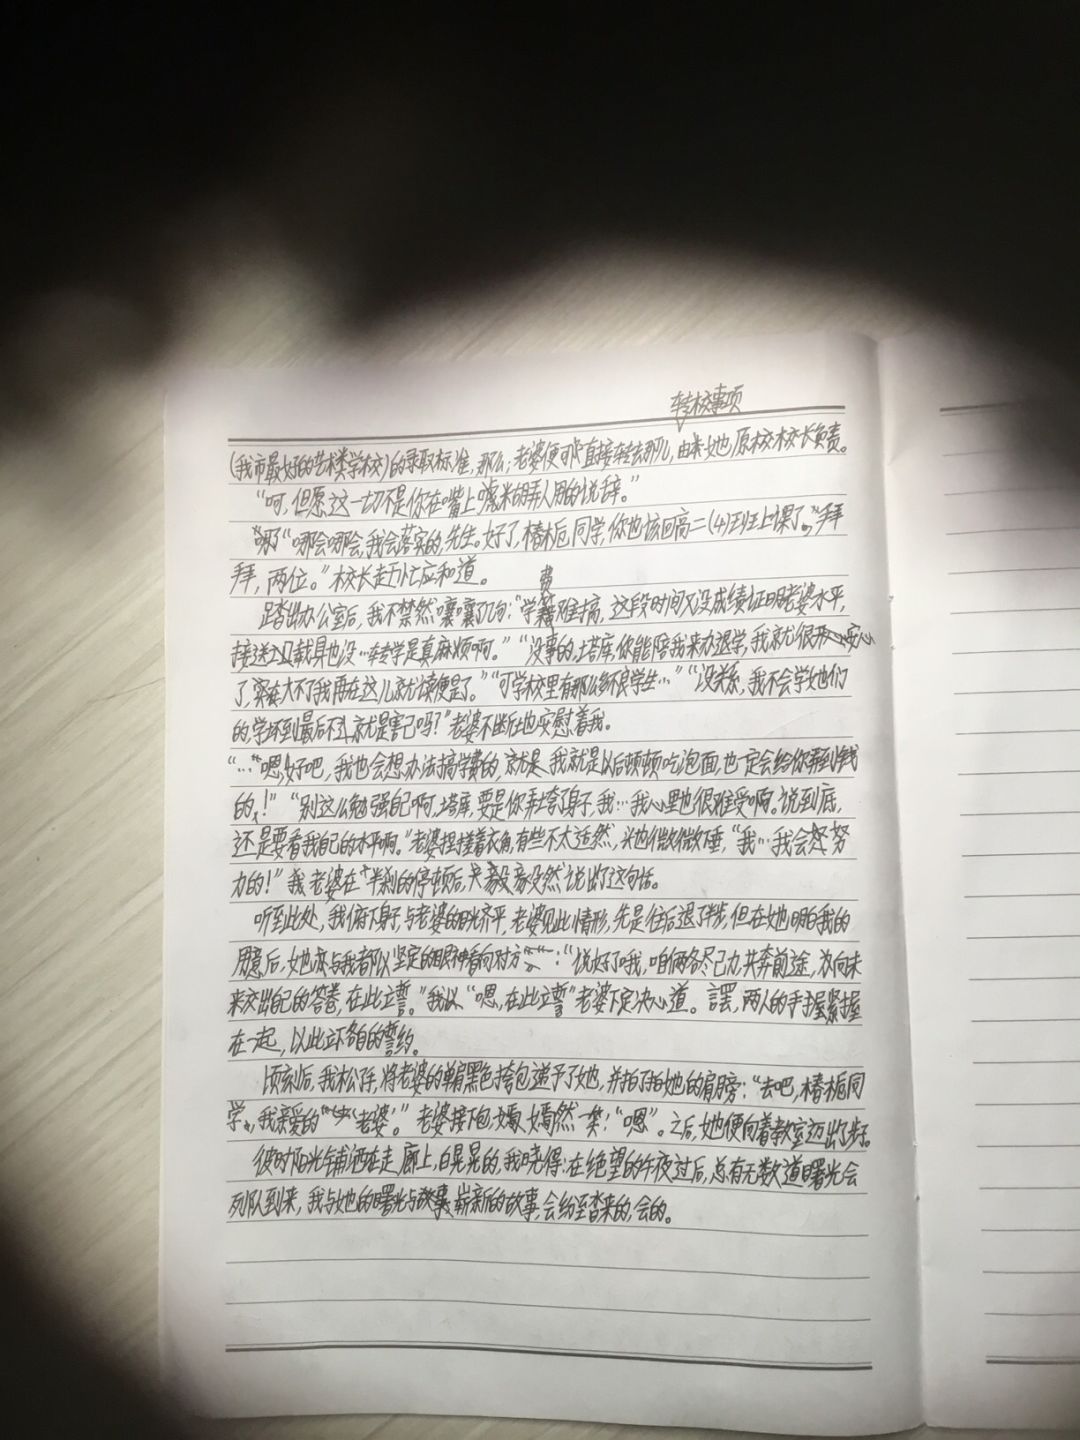 转校事项
(我市最好的艺术类学校)的录取标准，那么，老婆便可直接转去那儿，由她原校校长负责。
“呵，但愿这一切不是你在嘴上唬弄人用的说辞。”
“哪会哪会，我会落实的，先生。好了，椿栀同学，你也该回高二(4)班上课了，拜
拜，两位。”校长赶忙应和道。
费
踏出办公室后，我不禁然嚷嚷了几句：“学难搞，这段时间又没成绩证明老婆水平，
接送工具载具也没…转学是真麻烦啊。”“没事的，塔库，你能陪我来办退学，我就很安心
了，实在大不了我再在这儿就读便是了。”“可学校里有那么多不良学生…”“没关系，我不会学她们
的，学坏到最后不就是害己吗？”老婆不断地安慰着我。
“…嗯，好吧，我也会想办法搞学费的，就是我就是以后顿顿吃泡面，也一定会给你弄到钱
的！”“别这么勉强自己啊，塔库，要是你弄垮了身子，我…我心里也很难受啊。说到底，
还是要看我自己的水平啊。”老婆捏搓着衣角，有些不太适然，头也微微低垂，“我…我会努
力的！”老婆在半刹的停顿后，毅然说出了这句话。
听到此处，我俯下身子，与老婆的目光齐平，老婆见此情形，先是往后退了半步，但在她明白我的
用意后，她亦与我都以坚定的眼神看向对方：“说好了哦，咱俩各尽己力，共奔前途，为向未
来交出自己的答卷，在此立誓。”“嗯，在此立誓”老婆下定决心道。言罢，两人的手握紧握
在一起，以此立下各自的誓约。
顷刻后，我松了手，将老婆的单肩黑色挎包递予了她，并拍了拍她的肩膀：“去吧，椿栀同
学，我亲爱的老婆。”老婆接下包，嫣然一笑：“嗯”。之后，她便向着教室迈出了步子。
彼时阳光铺洒在走廊上，白晃晃的，我晓得：在绝望的午夜过后，总有无数道曙光会
列队到来，我与她的曙光与故事，崭新的故事，会纷至沓来的，会的。